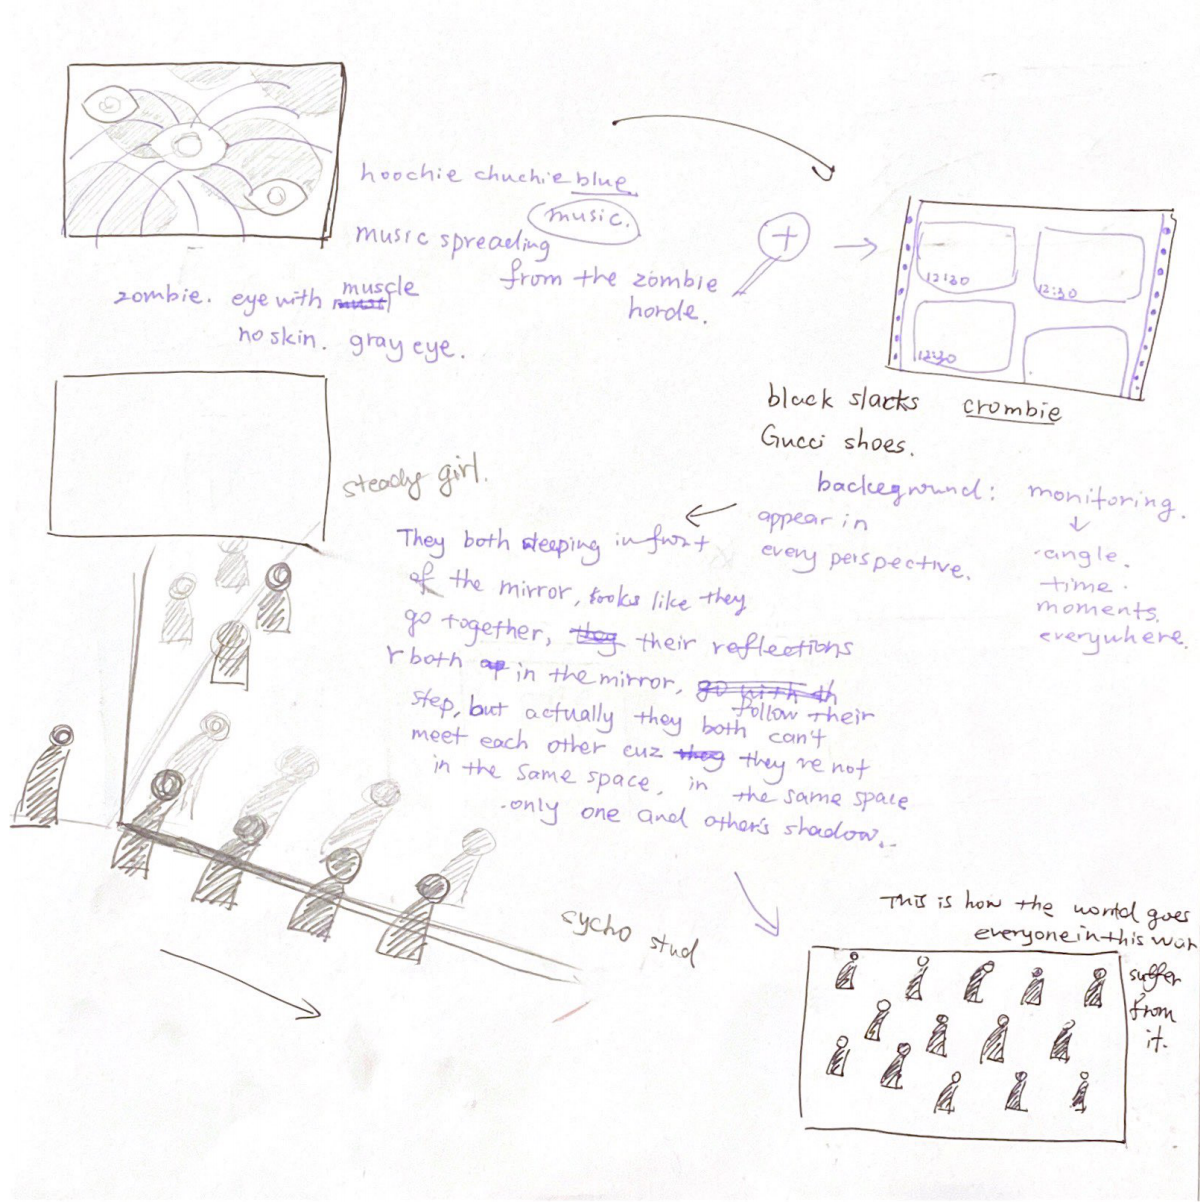 hoochie chuchie blue
music.
music spreading
from the zombie
horde.
zombie. eye with muscle
no skin. gray eye.
12:30
12:30
12:30
black slacks crombie
Gucci shoes.
background: monitoring.
appear in
every perspective.
angle.
time.
moments.
everywhere.
steady girl.
They both steeping infront
of the mirror, looks like they
go together, they their reflections
r both in the mirror, go with th
follow their
step, but actually they both can't
meet each other cuz they they're not
in the same space, in the same space
only one and other's shadow..
sycho stud
This is how the world goes
everyone in this wor
suffer
from
it.